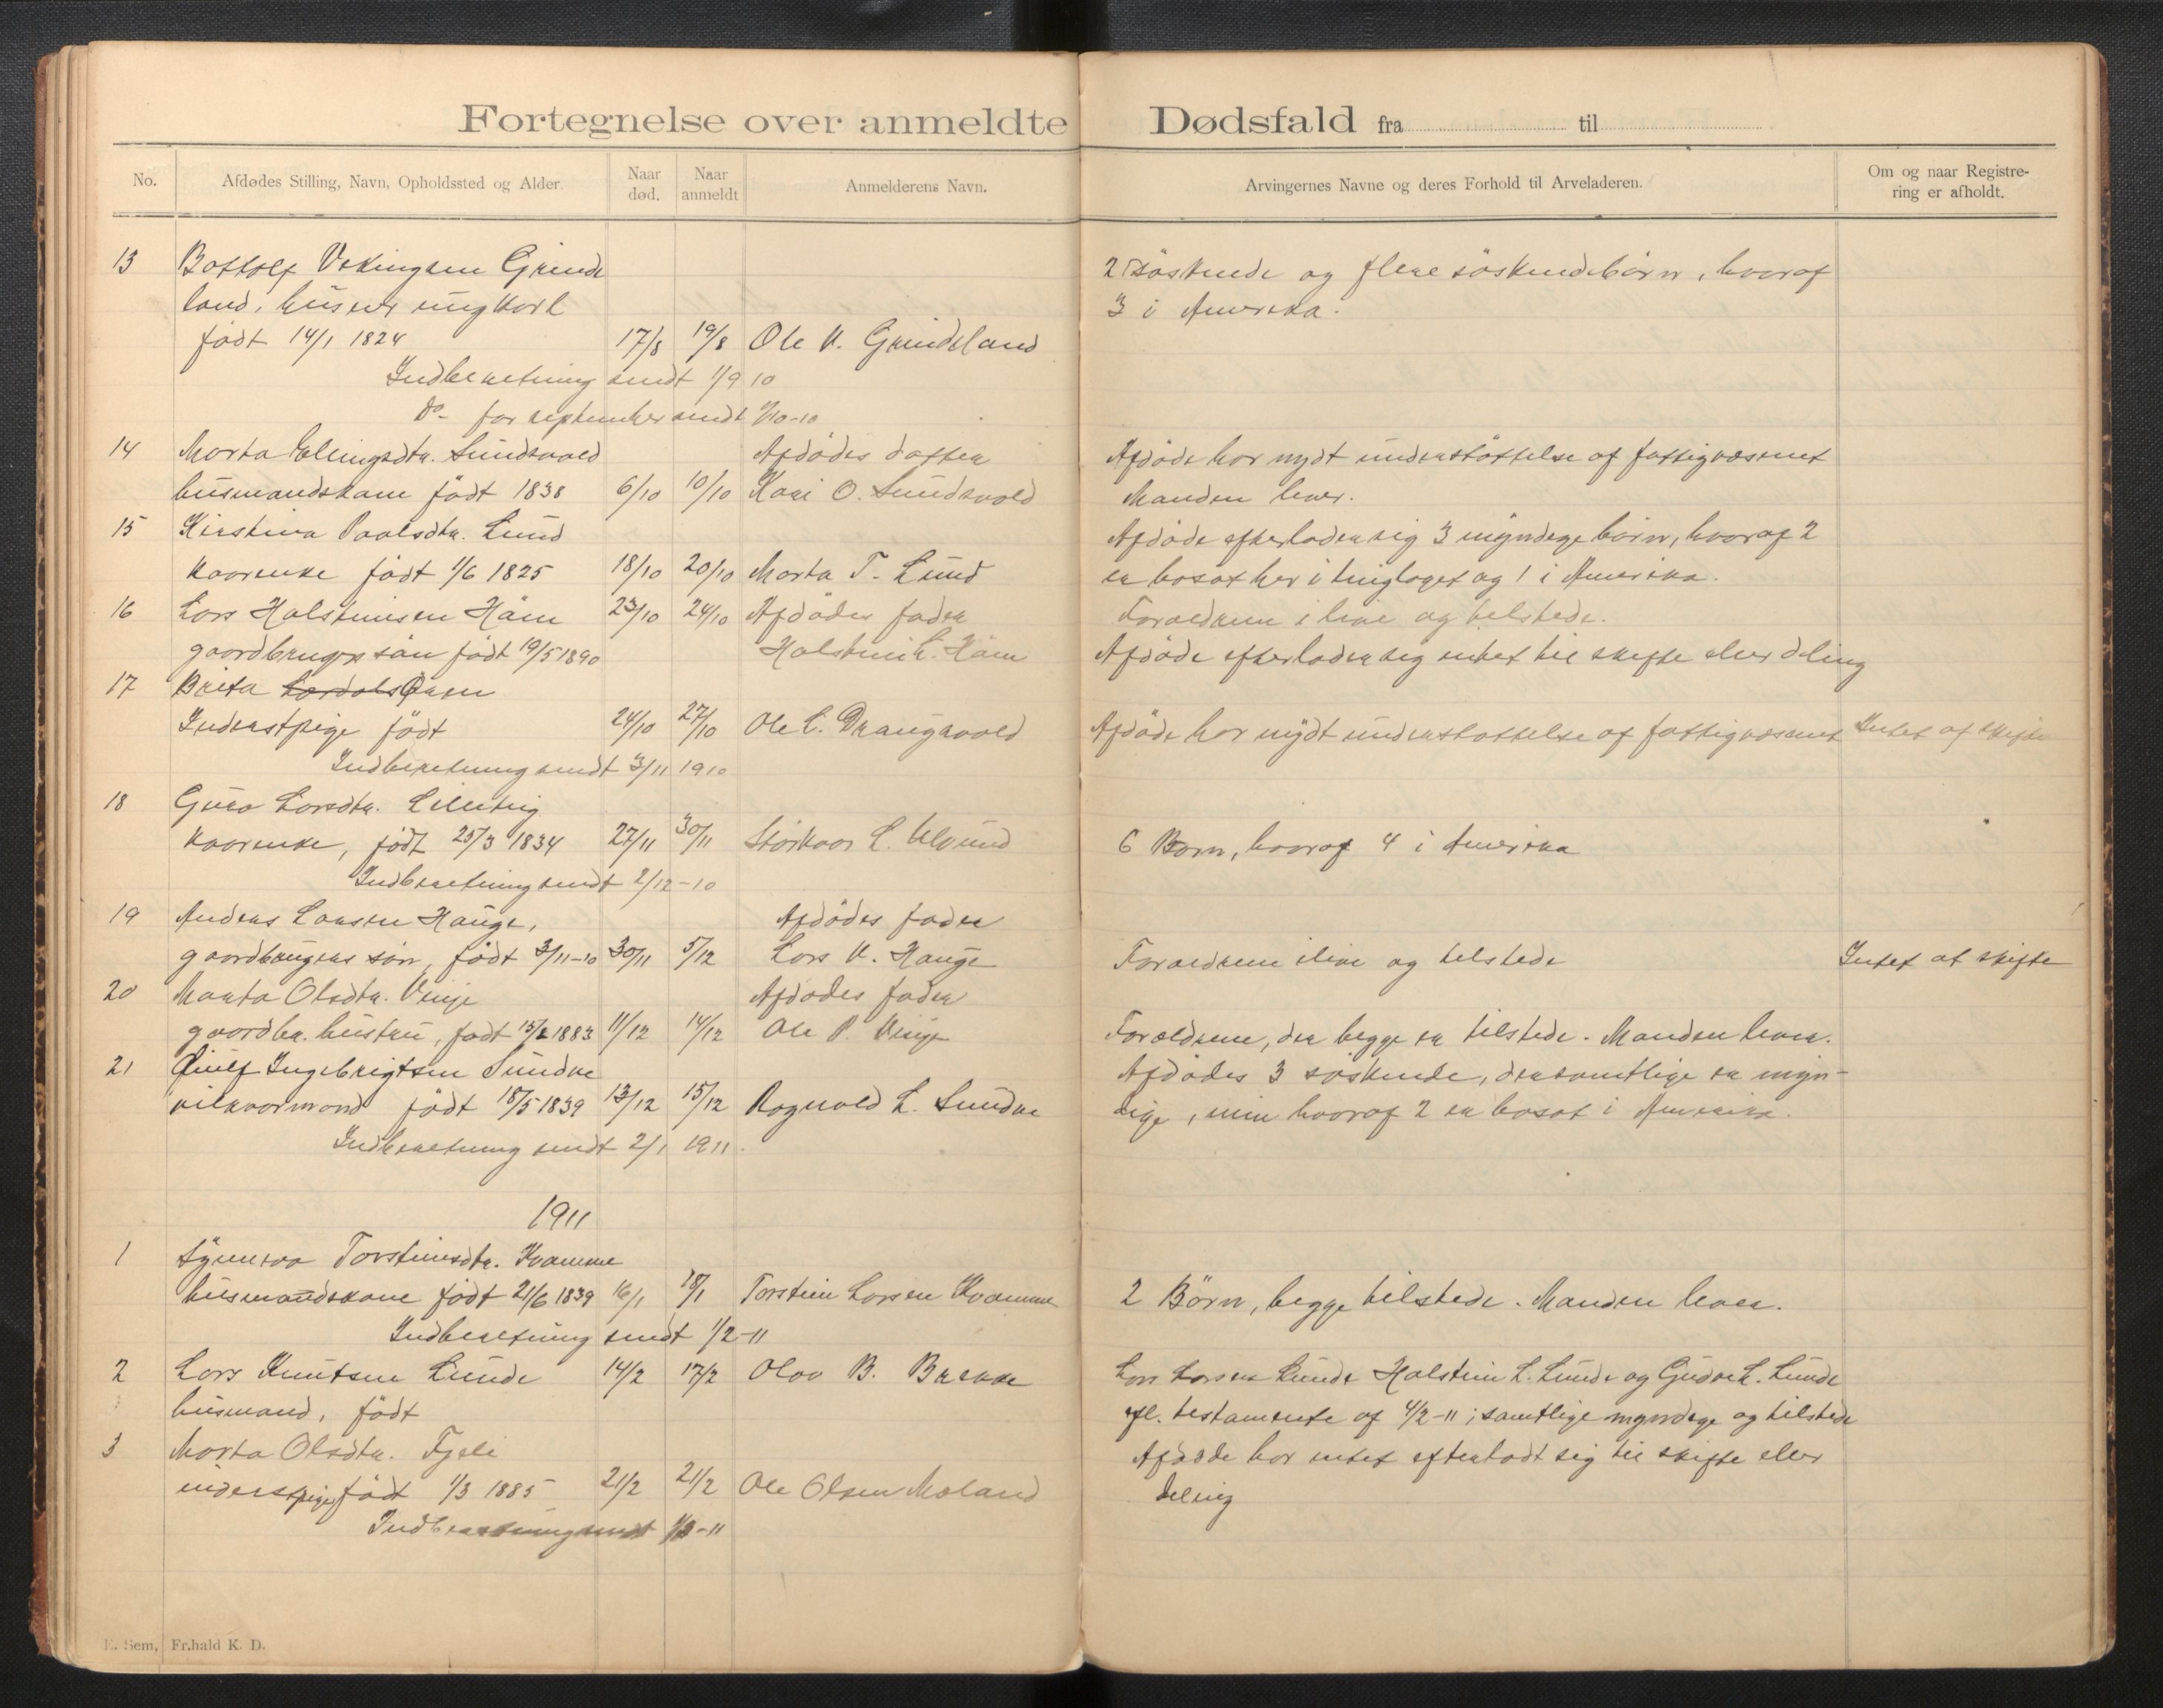 Fortegnelse over anmeldte Dødsfald fra til
No. Afdødes Stilling, Navn, Opholdssted og Alder. Naar død. Naar anmeldt Anmelderens Navn. Arvingernes Navne og deres Forhold til Arveladeren. Om og naar Registrering er afholdt.
13 Bottolf Vikingsen Grinde 2 söskende og flere söskendebörn, hvoraf
land, ungkarl 3 i Amerika.
födt 14/1 1824 17/8 19/8 Ole V. Grindeland
Indberetning sendt 1/9 10
Do- for september sendt 1/10-10
14 Marta Ellingsdtr. Sundsvold Afdödes datter Afdöde har nydt understöttelse af fattigvæsenet
husmandskone födt 1838 6/10 10/10 Kari O. Sundsvold Manden lever.
15 Kirstina Paalsdtr. Lund Afdöde efterlader sig 3 myndige börn, hvoraf 2
kaarenke födt 1/6 1825 18/10 20/10 Marta T. Lund er bosat her i tinglaget og 1 i Amerika.
16 Lars Halsteinsen Ham 23/10 24/10 Afdödes fader Foræeldrene i live og tilstede.
gaardbrugers sön födt 19/5 1890 Halstein L. Ham Afdöde efterlader sig intet til skifte eller deling
17 Brita Ören
Inderstpige födt 24/10 27/10 Ole L. Draugsvold Afdöde har nydt understøttelse af fattigvæsenet Intet at skifte
Indberetning sendt 3/11 1910
18 Guro Larsdtr.
kaarenke, födt 25/3 1834 27/11 30/11 L. Ulvund 6 Børn, hvoraf 4 i Amerika
Indberetning sendt 2/12-10
19 Anders Larsen Hauge, Afdödes fader
gaardbrugers sön, födt 3/11-10 30/11 5/12 Lars V. Hauge Foræeldrene ilive og tilstede Intet at skifte
20 Marta Olsdtr. Vinje Afdødes fader
gaardbr. hustru, født 15/2 1883 11/12 14/12 Ole P. Vinje Forældrene, der begge er tilstede. Manden lever.
21 Ingebrigtsen Sundve Afdödes 3 söskende, der samtlige er myn-
vilkaarmand födt 18/5 1839 13/12 15/12 Ragnvald L. Sundve dige, men hvoraf 2 er bosat i Amerika.
Indberetning sendt 2/1 1911.
1911
1 Synneva Torsteinsdtr. Kvamme
husmandskone födt 21/6 1839 16/1 18/1 Torstein Larsen Kvamme 2 Börn, begge tilstede. Manden lever.
Indberetning sendt 1/2-11
2 Lars Knutsen Lunde 14/2 17/2 Olav B. Brekke Lars Larsen Lunde Halstein L. Lunde og Gudve L. Lunde
husmand, födt efl. testamente af 4/2-11; samtlige myndige og tilstede
3 Marta Olsdtr. Fjeli Afdøde har intet efterladt sig til skifte eller
inderstpige, födt 1/3 1885 21/2 21/2 Ole Olsen Moland deling
Indberetning sendt 1/3-11
E. Sem, Fr.hald K. D.